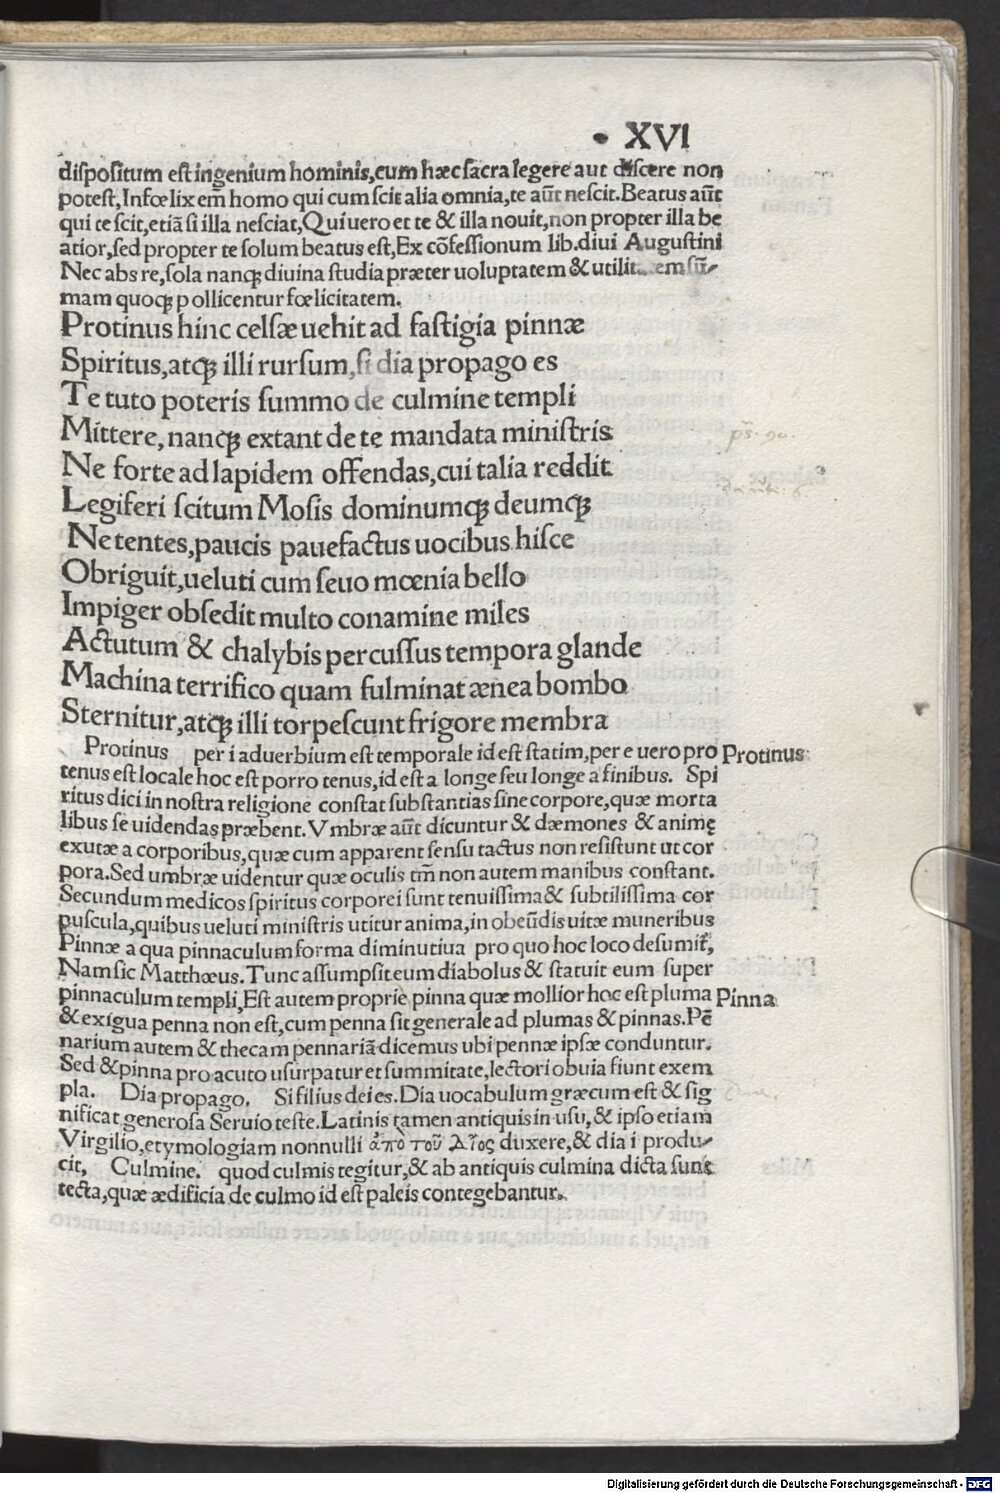 XVI
dispositum est ingenium hominis,cum hæc sacra legere aut discere non
potest,Infœlix em̄ homo qui cum scit alia omnia,te aūt nescit.Beatus aūt
qui te scit,etiā si illa nesciat,Qui uero et te & illa nouit,non propter illa be
atior,sed propter te solum beatus est,Ex cōfessionum lib.diui Augustini
Nec abs re,sola nanqꝫ diuina studia præter uoluptatem & utilit em sū⸗
mam quoqꝫ pollicentur fœlicitatem.
Protinus hinc celsæ uehit ad fastigia pinnæ
Spiritus,atqꝫ illi rursum,si dia propago es
Te tuto poteris summo de culmine templi
Mittere, nanqꝫ extant de te mandata ministris
Ne forte ad lapidem offendas,cui talia reddit
Legiferi scitum Mosis dominumqꝫ deumqꝫ
Ne tentes,paucis pauefactus uocibus hisce
Obriguit,ueluti cum seuo mœnia bello
Impiger obsedit multo conamine miles
Actutum & chalybis percussus tempora glande
Machina terrifico quam fulminat ænea bombo
Sternitur,atqꝫ illi torpescunt frigore membra
Protinus per i aduerbium est temporale id est statim,per e uero pro Protinus
tenus est locale hoc est porro tenus,id est a longe seu longe a finibus. Spi
ritus dici in nostra religione constat substantias sine corpore,quæ morta
libus se uidendas præbent.Vmbræ aūt dicuntur & dæmones & animę
exutæ a corporibus,quæ cum apparent sensu tactus non resistunt ut cor
pora.Sed umbræ uidentur quæ oculis tm̄ non autem manibus constant.
Secundum medicos spiritus corporei sunt tenuissima & subtilissima cor
puscula,quibus ueluti ministris utitur anima,in obeūdis uitæ muneribus
Pinnæ a qua pinnaculum forma diminutiua pro quo hoc loco desumit̃,
Nam sic Matthæus.Tunc assumpsit eum diabolus & statuit eum super
pinnaculum templi,Est autem proprie pinna quæ mollior hoc est pluma Pinna
& exigua penna non est,cum penna sit generale ad plumas & pinnas.Pē
narium autem & thecam pennariā dicemus ubi pennæ ipsæ conduntur.
Sed & pinna pro acuto usurpatur et summitate,lectori obuia fiunt exem
pla. Dia propago. Si filius dei es. Dia uocabulum græcum est & sig
nificat generosa Seruio teste.Latinis tamen antiquis in usu,& ipso etiam
Virgilio,etymologiam nonnulli ἀπὸ τοῦ Δῖος duxere,& dia i produ⸗
cit, Culmine. quod culmis tegitur,& ab antiquis culmina dicta sunt
tecta,quæ ædificia de culmo id est paleis contegebantur.
Digitalisierung gefördert durch die Deutsche Forschungsgemeinschaft - DFG